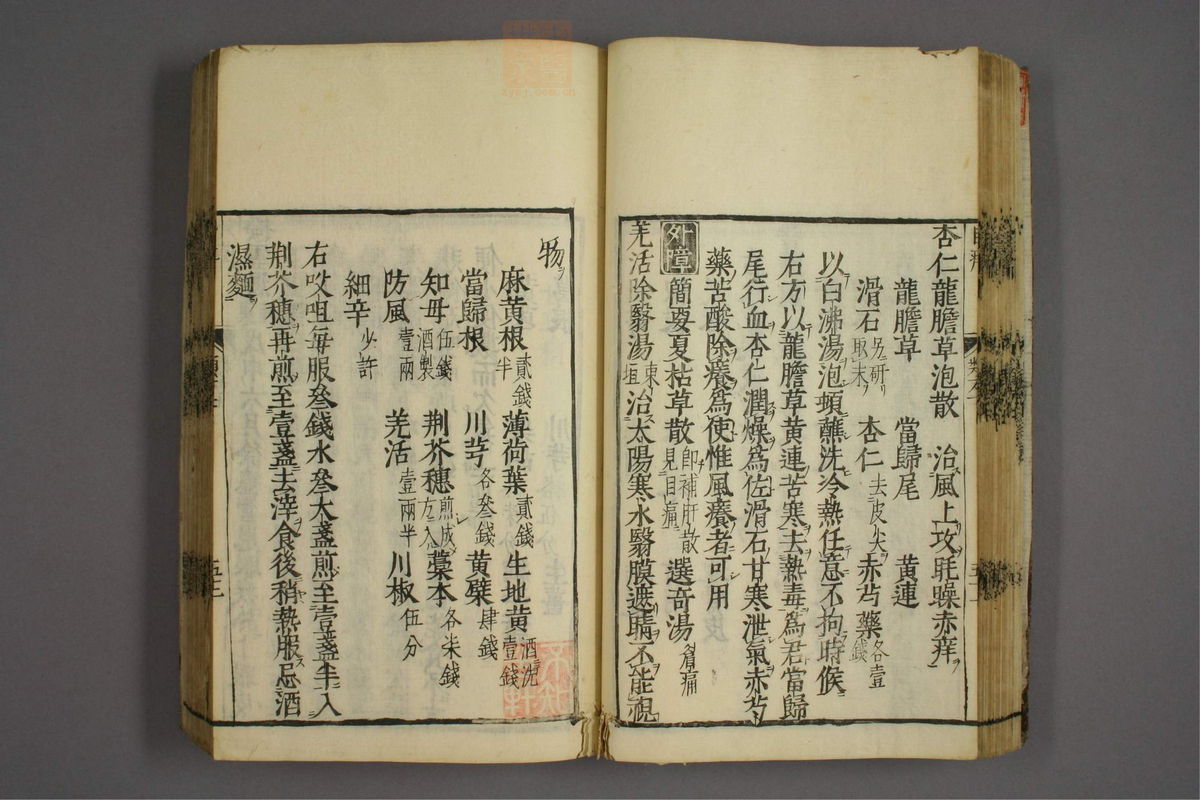 杏仁龍膽草泡散 治風上攻眊矂赤痒
龍膽草 當歸尾 黃連
滑石另研取末 杏仁去皮尖 赤芍藥各壹錢
以白沸湯泡頓蘸洗冷熱任意不拘時候
右方以龍膽草黃連苦寒去熱毒為君當歸
尾行血杏仁潤燥為佐滑石甘寒泄氣赤芍
藥苦酸除癢為使惟風癢者可用
外障 簡要夏枯草散即補肝散見目痛 選奇湯眉痛
羌活除翳湯東垣 治太陽寒水翳膜遮睛不能視
物
麻黃根貳錢半 薄荷葉貳錢 生地黃酒洗壹錢
當歸根 川芎各叁錢 黃檗肆錢
知母伍錢酒製 荆芥穗煎成方入 藁本各柒錢
防風壹兩 羌活壹兩半 川椒伍分
細辛少許
右㕮咀每服叁錢水叁大盞煎至壹盞半入
荆芥穗再煎至壹盞去滓食後稍熱服忌酒
濕麵
五十三
zysj.com.cn